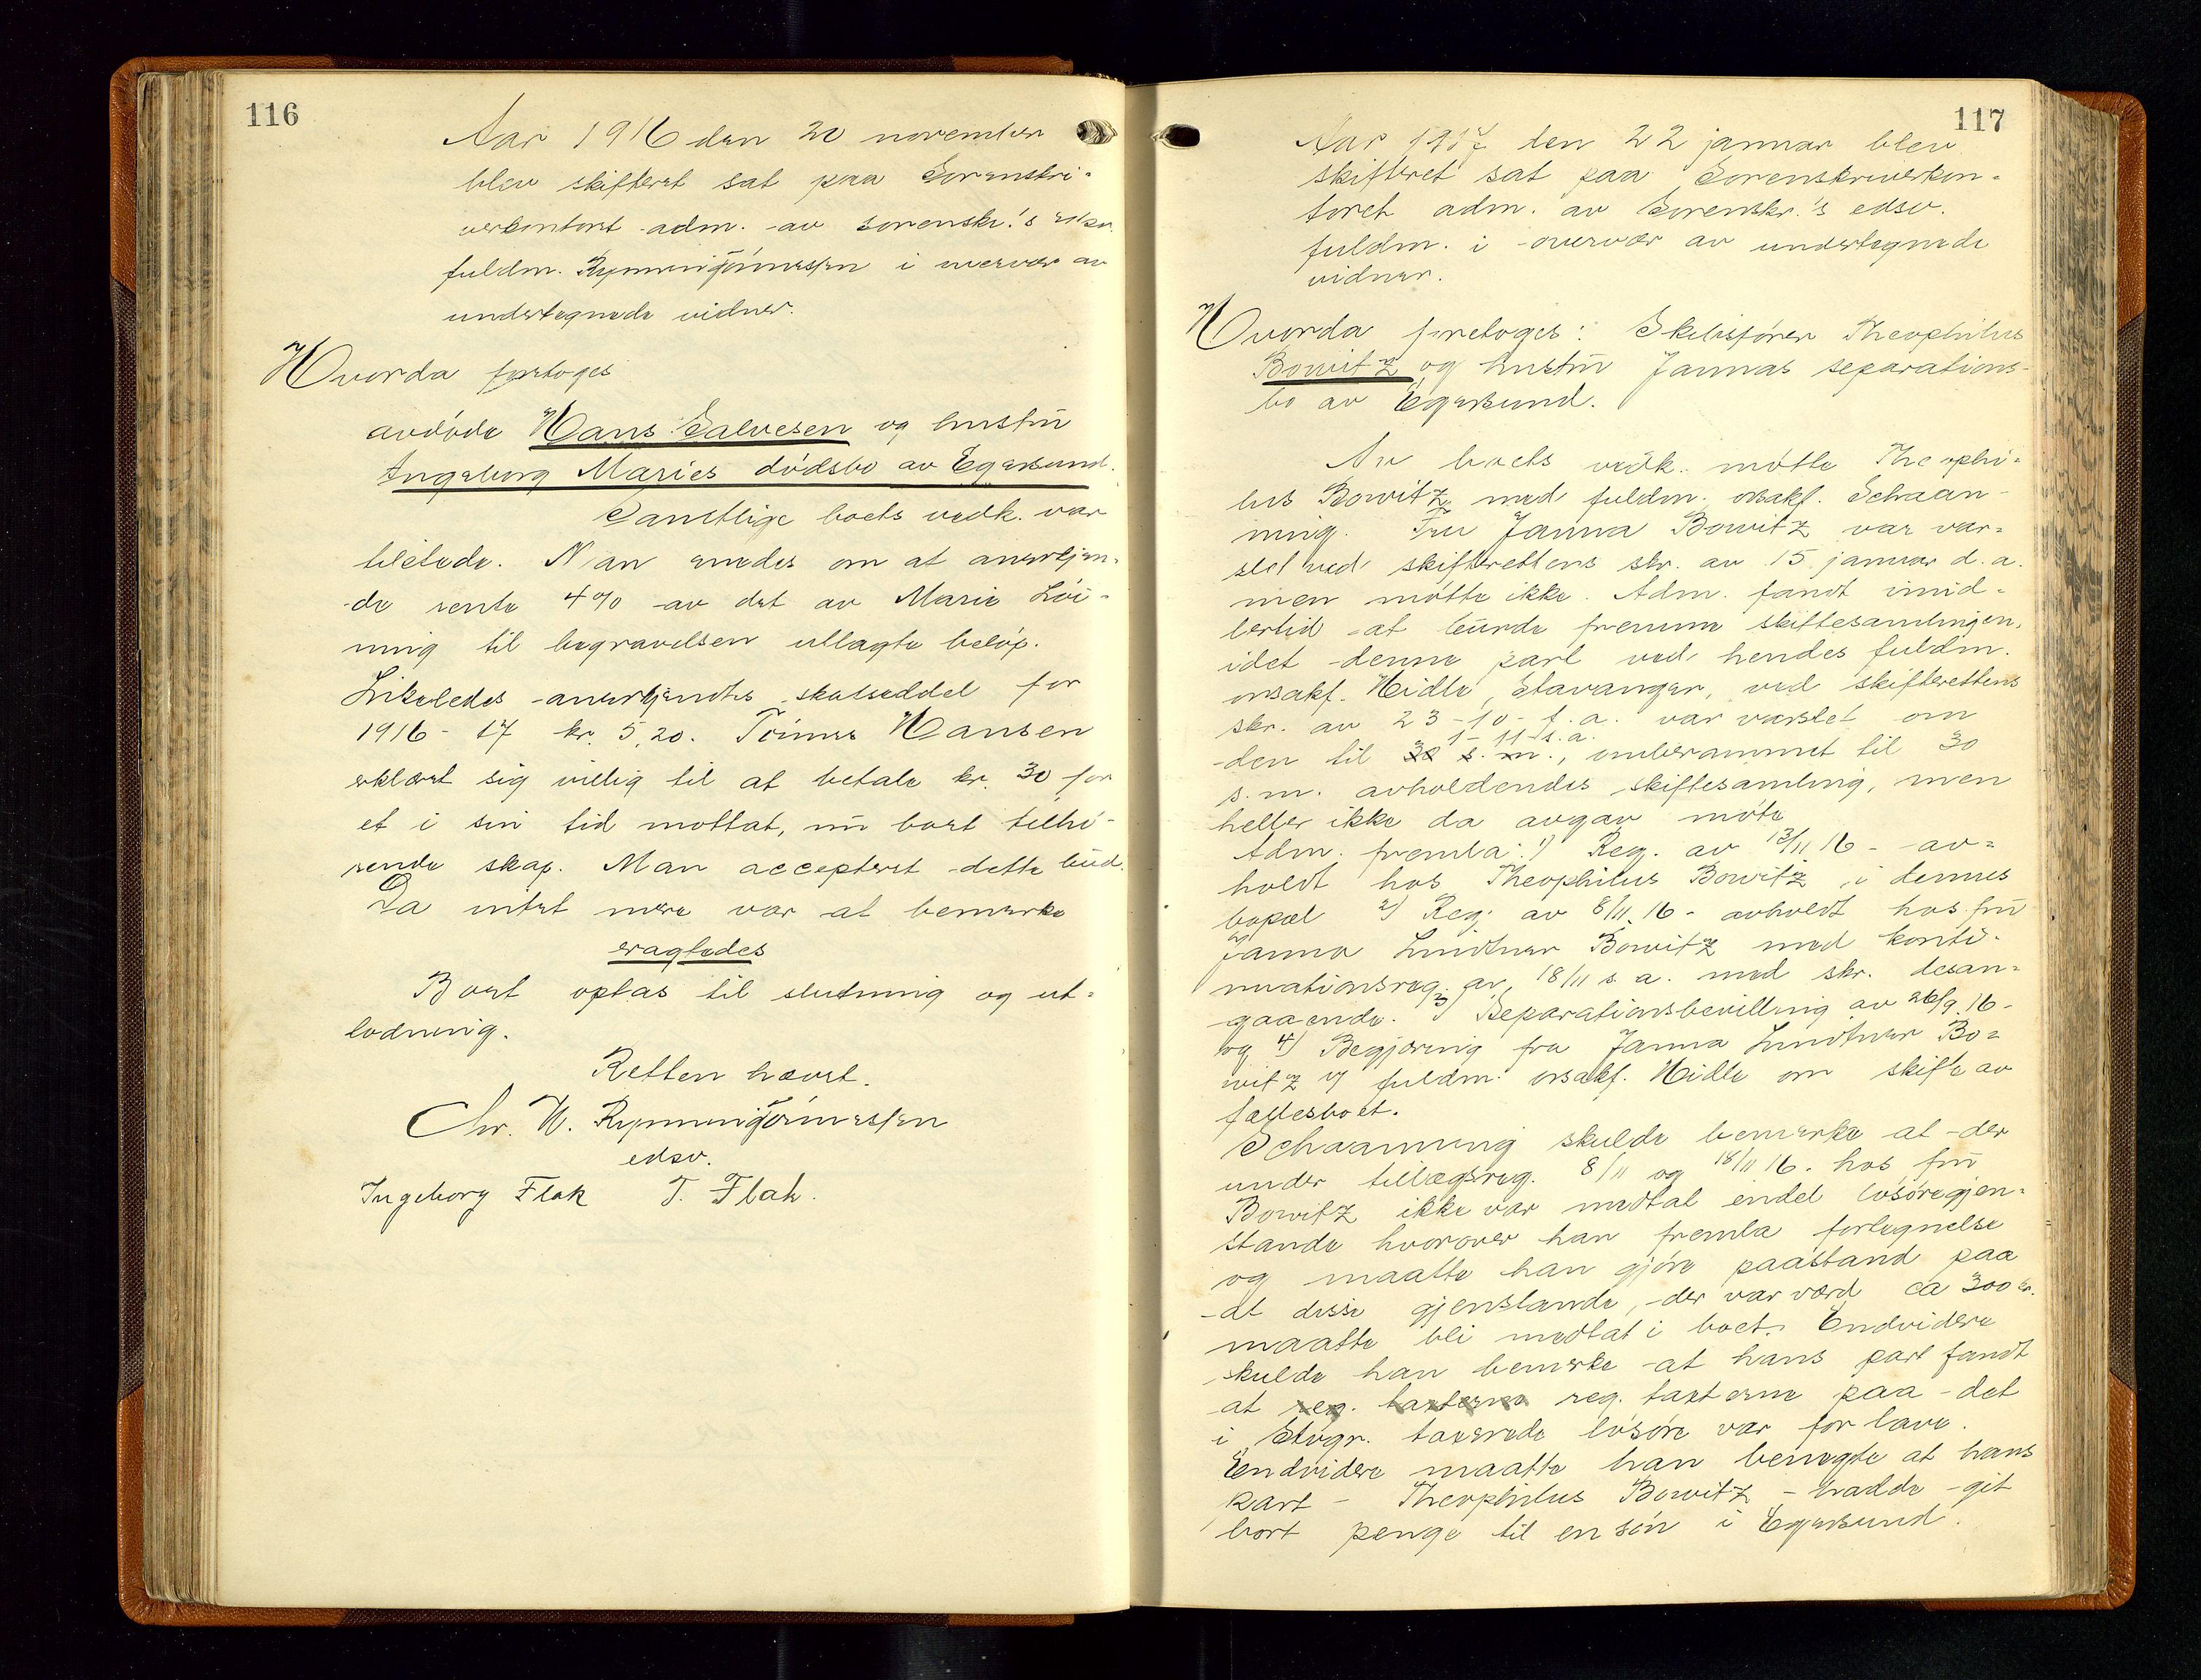 116
Aar 1916 den 20 november
blev skifteret sat paa Sorenskri-
verkontoret adm. av sorenskr.'s edsv.
fuldm. Rynning Tönnessen i overvær av
undertegnede vidner.
Hvorda foretoges
avdöde Hans Salvesen og hustru
Ingeborg Maries dödsbo av Egersund.
Samtlige boets vedk. var
tilstede. Man enedes om at anerkjen-
de rente 4% av det av Marie Löi-
ning til begravelsen utlagte belöp.
Likeledes anerkjendtes skatseddel for
1916-17 kr. 5,20. Tönnes Hansen
erklæret sig villig til at betale kr. 30 for
et i sin tid mottat, nu boet tilhö-
rende skap. Man accepteret dette bud.
Da intet mere var at bemerke
eragtedes
Boet optas til slutning og ut-
lodning.
Retten hævet.
Chr. H. Rynning Tönnessen
edsv.
Ingeborg Flak T. Flak.
117
Aar 1917 den 22 januar blev
skifteret sat paa Sorenskriverkon-
toret adm. av Sorenskr.'s edsv.
fuldm. i overvær av undertegnede
vidner.
Hvorda foretoges: Skibsförer Theophilus
Bowitz og hustru Jannas separations-
bo av Egersund.
Av boets vedk. mötte Theophi-
lus Bowitz med fuldm. orsakf. Schaan-
ning. Fru Janna Bowitz var var-
slet ved skifterettens skr. av 15 januar d.a.
men mötte ikke. Adm. fandt imid-
lertid at burde fremme skiftesamlingen,
idet denne part ved hendes fuldm.
orsakf. Hidle, Stavanger, ved skifterettens
skr. av 23-10-f.a. var varslet om
1-11 s.a.
den til 30 s.m., omberammet til 30
s.m. avholdendes skiftesamling, men
heller ikke da avgav möte
Adm. fremla: 1) Reg. av 13/11 16 - av-
holdt hos Theophilus Bowitz i dennes
bopæl 2) Reg. av 8/11.16 - avholdt hos fru
Janna Lindtner Bowitz med konti-
nuationsreg. av 18/11 s.a. med skr. desan-
gaaende. 3) Separationsbevilling av 26/9.16 -
og 4) Begjæring fra Janna Lindtner Bo-
witz v/ fuldm. orsakf. Hidle om skifte av
fællesboet.
Schaanning skulde bemerke at der
under tillægsreg. 8/11 og 18/11 16. hos fru
Bowitz ikke var medtat endel lösöregjen-
stande hvorover han fremla fortegnelse
og maatte han gjöre paastand paa
at disse gjenstande, der var værd ca 300 kr.
maatte bli medtat i boet. Endvidere
skulde han bemerke at hans part fandt
at reg. taxterne reg. taxterne paa det
i Stvgr. taxerede lösöre var for lave.
Endvidere maatte han benegte at hans
part - Theophilus Bowitz - hadde git
bort penge til en sön i Egersund.